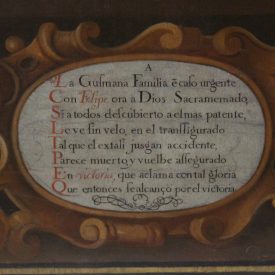 A
La Gusmana Familia ē caso urgente
Con Felipe ora a Dios Sacramemado,
Si a todos descubierto a el mas patente,
Le ve sin velo, en el transfigurado
Ial que el extasi jusgan accidente,
Parece muerto y vuelbe assegurado
En victoria, que aclama con tal gloria
Que entonces se alcanço por el victoria.